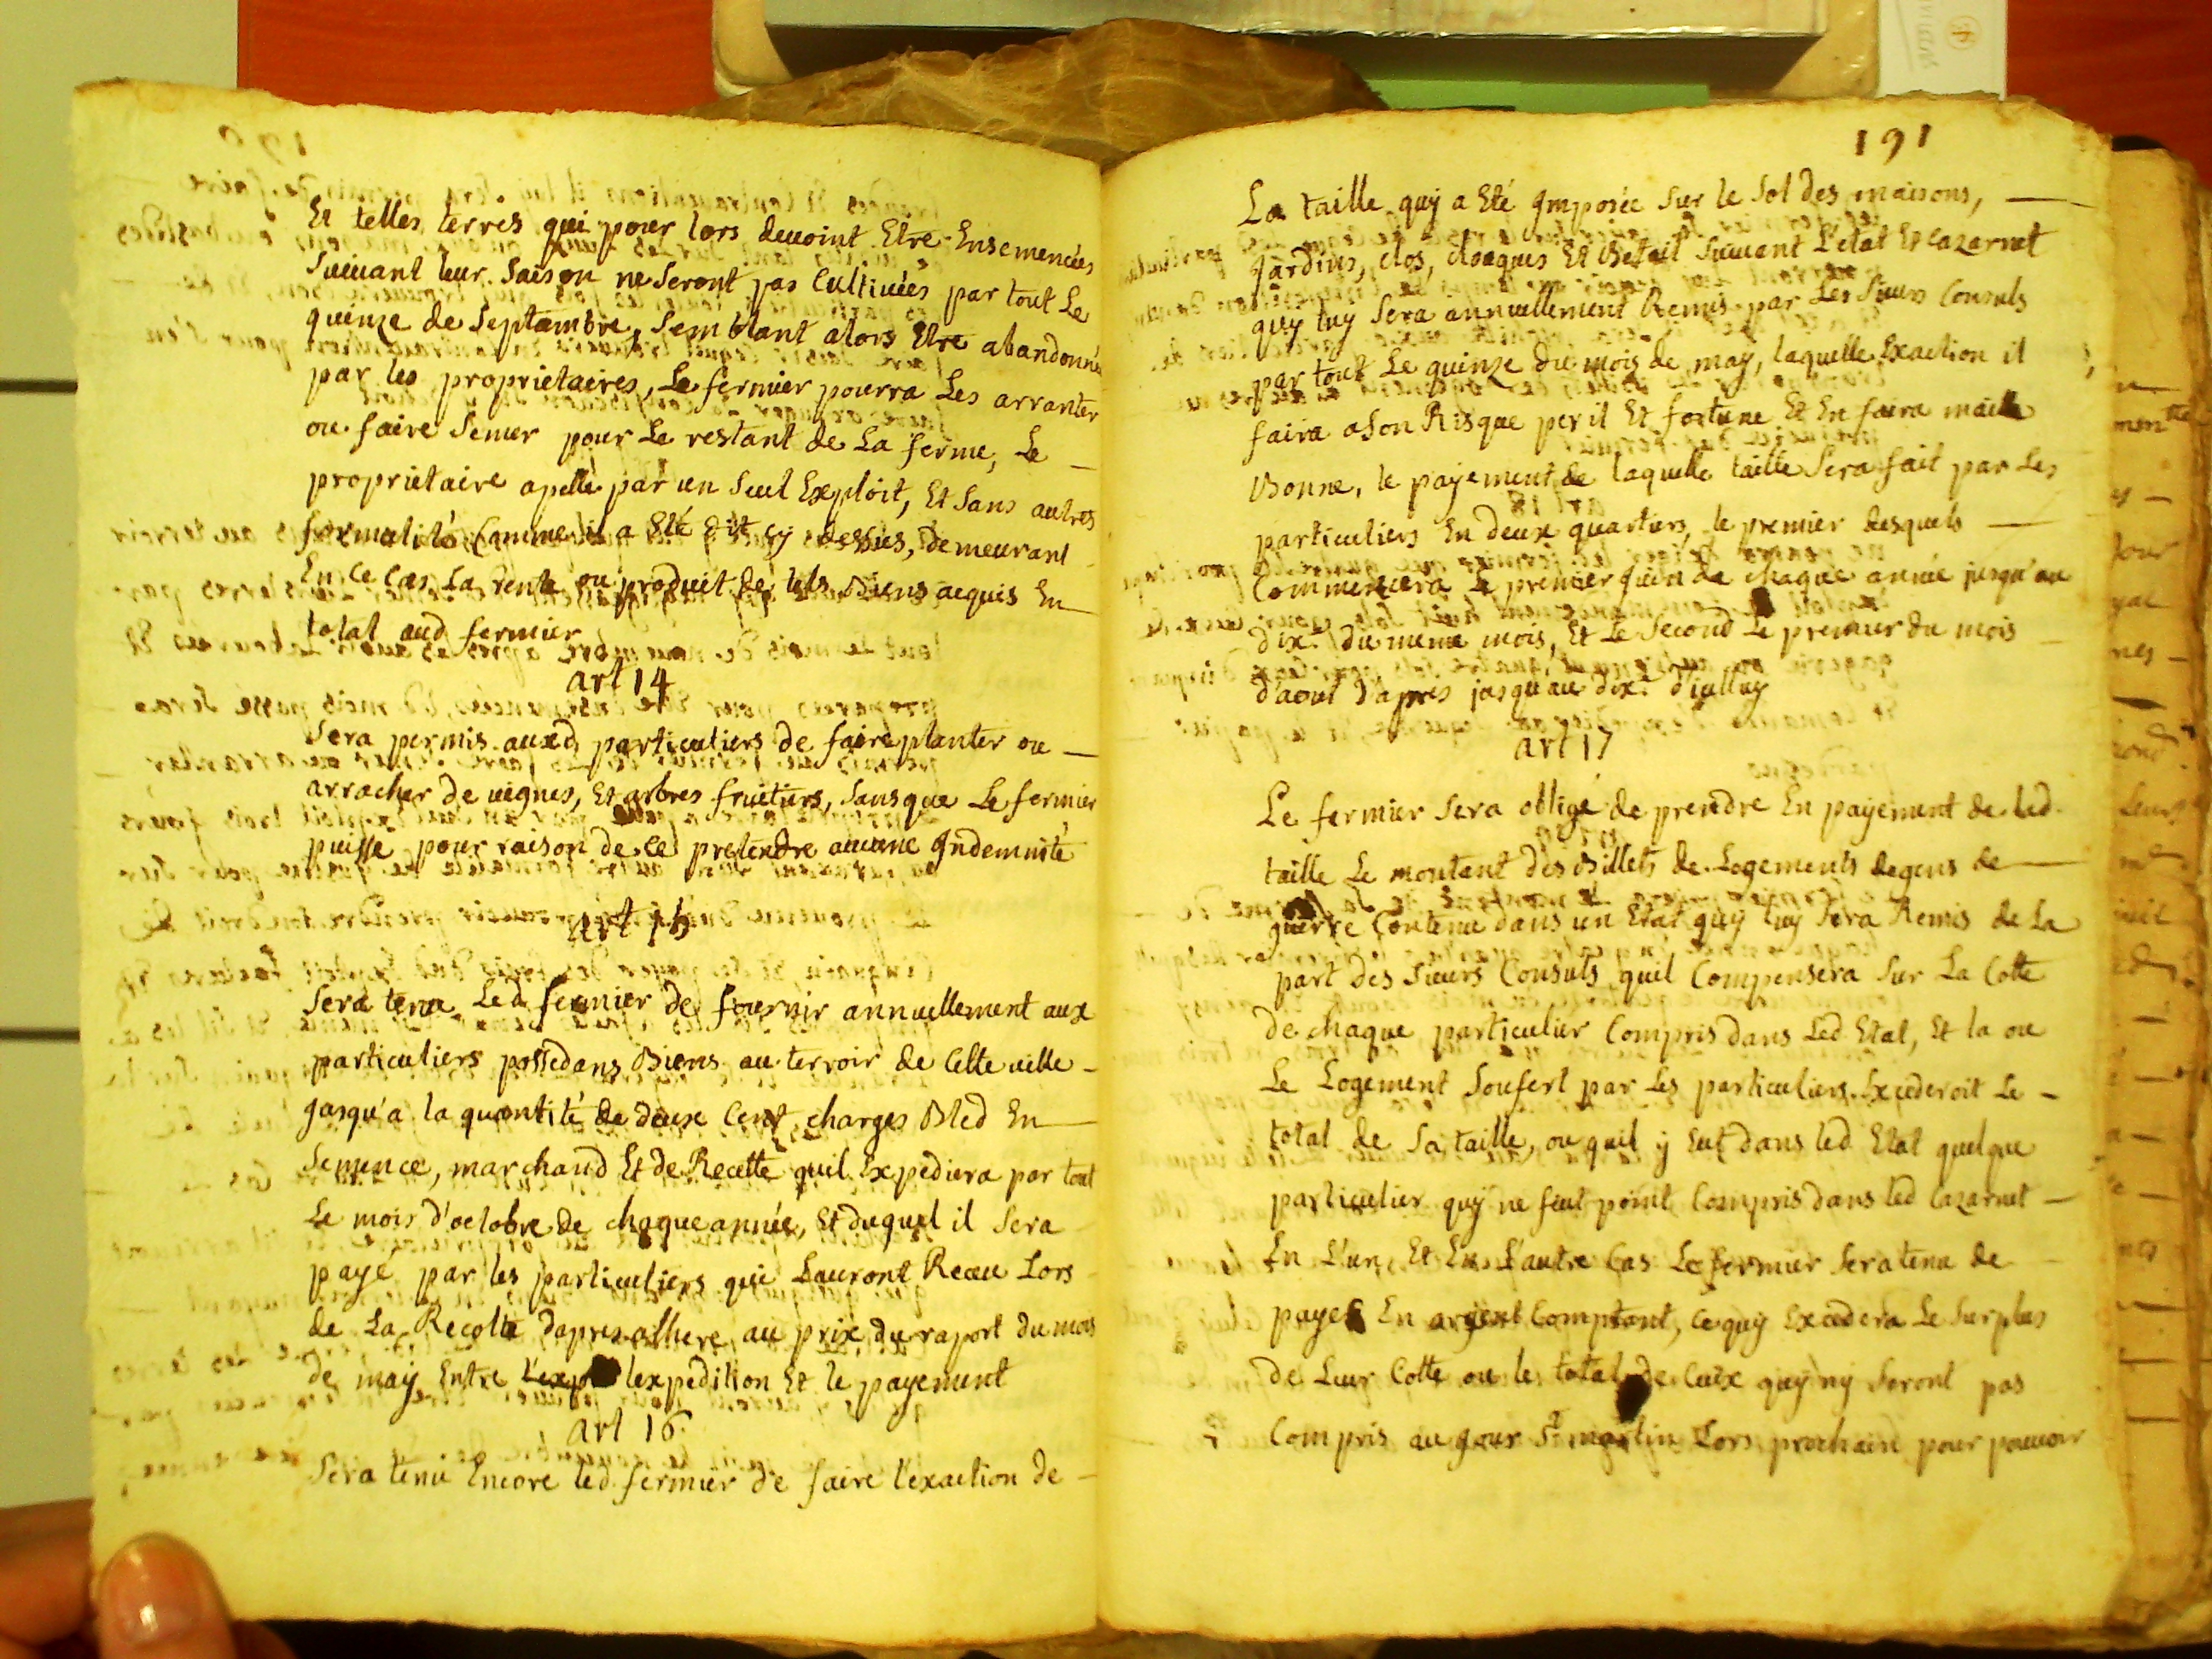 Et telles terres qui pour lors devoint Etre Ensemencées
suivant leur saison ne seront pas Cultivées par tout Le
quinze de septembre, semblant alors Etre abandonnés
par les proprietaires, Le fermier pourra Les arranter
ou faire semer pour Le restant de La ferme, Le —
proprietaire apellé par un seul Exploit, Et sans autres
formalité Comme il a Eté dit cy dessus, demeurant
En ce Cas La rente ou produit de tels Biens acquis En
total aud fermier
art 14
Sera permis auxd particuliers de faire planter ou —
arracher de vignes, Et arbres fruitiers, sans que Le fermier
puisse pour raison de ce pretendre aucune Indemnité
art 15
Sera tenu Led fermier de fournir annuellement aux
particuliers possedans Biens au terroir de Cette ville —
jusqu'a la quantité de deux Cent charges Bled En —
Semence, marchand Et de Recette quil Expediera par tout
Le mois d'octobre de chaque année, Et duquel il sera
payé par les particuliers qui Lauront Reçu Lors
de La Recolte d'apres au prix du raport du mois
de may Entre lexpedition Et le payement
art 16
Sera tenu Encore led fermier de faire l'exaction de —
191
La taille quy a Eté Imposée sur le sol des maisons, —
Jardins, clos, cloaques Et Betail suivant L'etat Et Cazarnet
quy luy sera annuellement Remis par Les sieurs Consuls
par tout Le quinze du mois de may, laquelle Exaction il
faira a son Risque peril Et fortune Et En faira maille
Bonne, le payement de laquelle taille sera fait par Les
particuliers En deux quartiers, le premier desquels —
Commencera Le premier Juin de chaque année jusqu'au
dix.e du meme mois, Et Le second Le premier du mois
d'aout d'apres jusqu'au dix.e d'iulluy
art 17
Le fermier sera obligé de prendre En payement de lad.
taille Le montant des Billets de Logements de gens de —
guerre Contenu dans un Etat quy luy sera Remis de La
part des sieurs Consuls quil Compensera sur La Cotte
de chaque particulier Compris dans Led Etat, Et la ou
Le Logement soufert par Les particuliers Excederoit Le —
total de sa taille, ou quil y Eut dans led Etat quelque
particulier quy ne feut point Compris dans led Cazarnet —
En L'un Et En L'autre Cas Le fermier sera tenu de
payer En argent Comptant, ce quy Excedera Le surplus
de Leur Cotte ou le total de Ceux quy ny seront pas
Compris au jour St martin Lors prochain pour pouvoir